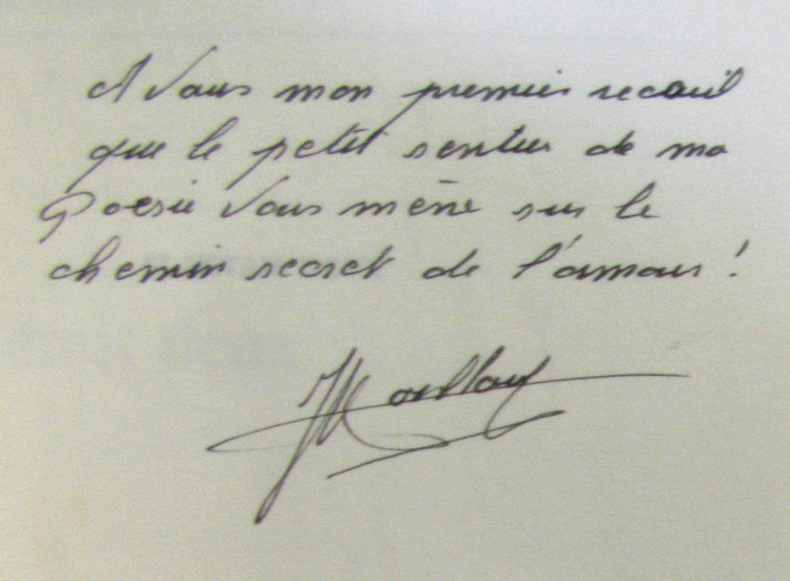 A Vous mon premier recueil
que le petit sentier de ma
Poésie Vous mène sur le
chemin secret de l'amour !